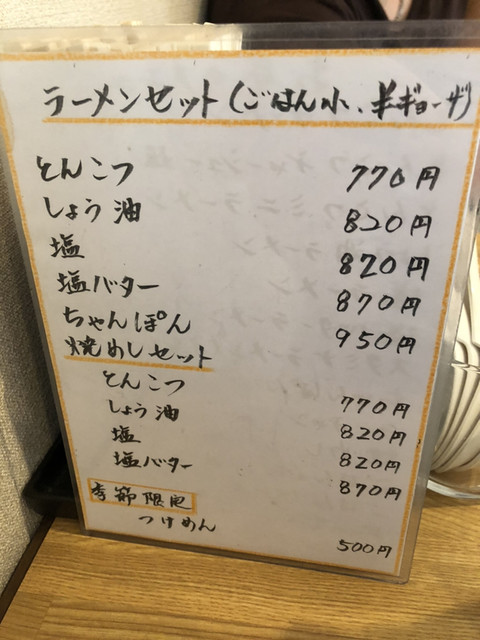 ラーメンセット(ごはん小、半ギョーザ)
とんこつ 770円
しょう油 820円
塩 820円
塩バター 870円
ちゃんぽん 950円
焼めしセット
とんこつ 770円
しょう油 820円
塩 820円
塩バター 870円
季節限定
つけめん 500円